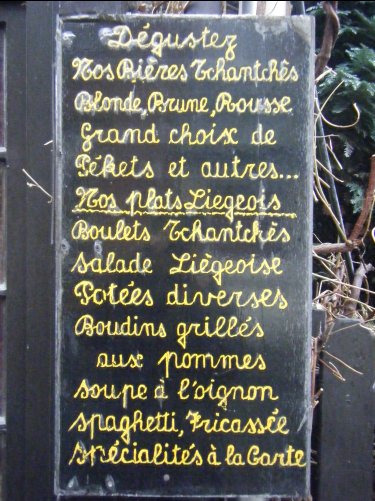 Dégustez
Nos Bières Tchantchès
Blonde, Brune, Rousse
Grand choix de
Pékets et autres...
Nos plats Liegeois
Boulets Tchantchès
Salade Liègeoise
Potées diverses
Boudins grillés
aux pommes
Soupe à l'oignon
Spaghetti, Fricassée
Spécialités à la Carte